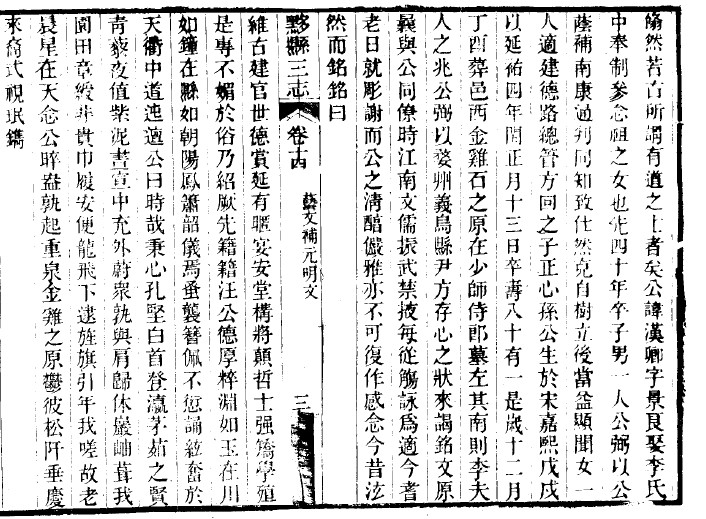 翛然若古所謂有道之士者矣公諱漢卿字景良娶李氏
中奉制參念祖之女也先四十年卒子男一人公弼以公
蔭補南康通判同知致仕然克自樹立後當益顯聞女一
人適建德路總管方回之子正心孫公生於宋嘉熙戊戌
以延祐四年閏正月十三日卒壽八十有一是歲十二月
丁酉葬邑西金雞石之原在少師侍郎墓左其南則李夫
人之兆公弼以婺州義烏縣尹方存心之狀來謁銘文原
義與公同僚時江南文儒振武禁掖每從觴詠為適今耆
老日就彫謝而公之清醕儼雅亦不可復作感念今昔泫
然而銘銘曰
黟縣三志 卷十四 藝文補元明文 三
維古建官世德賞延有暱宴安堂構將顛哲士强矯學殖
是專不媚於俗乃紹厥先籍籍汪公德厚粹淵如玉在川
如鐘在縣如朝陽鳳簫韶儀焉蚤襲簪佩不愆誦絃奮於
天衢中道迍邅公曰時哉秉心孔堅白首登瀛茅茹之賢
青藜夜值紫泥晝宣中充外蔚衆孰與肩歸休巖岫葺我
園田章綬非貴巾履安便龍飛下逮旌旗引年我嗟故老
晨星在天念公晬盎孰起重泉金雞之原鬱彼松阡垂慶
來裔式視珉鐫